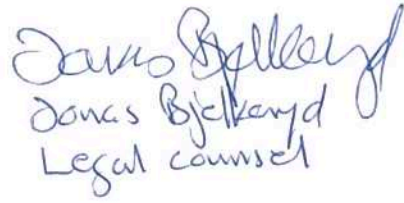 Jonas Bjelkeryd
Jonas Bjelkeryd
Legal counsel